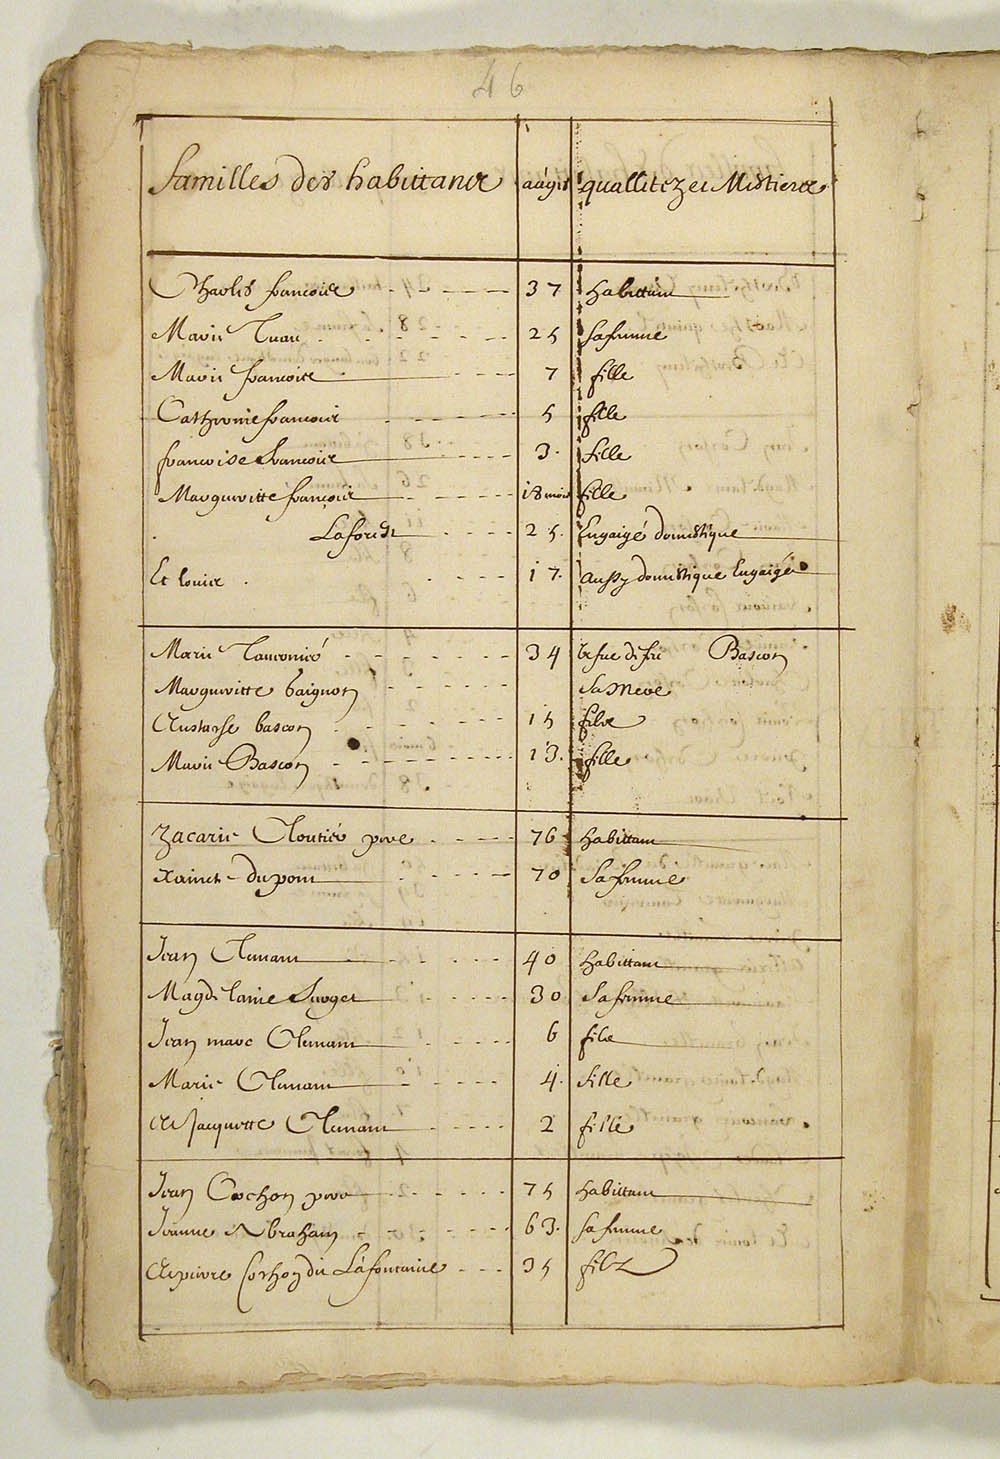 46
familles des habittans aages quallitez et Mestiers
Charles francois 37 habittant
Marie Truau 25 sa femme
Marie francoise 7 fille
Catherine francois 5 fille
francoise francois 3. fille
Margueritte francois 18 mois fille
Laforest 25. Engaigé domestique
Et louis 17. aussy domestique Engaigé
Marie 34 vefue de feu Bascon
Margueritte baignon sa Mere
Eustasse bascon 15 filx
Marie Bascon 13. fille
Zacarie Cloutier pere 76 habittant
Xainte dupont 70 sa femme
Jean Clemant 40 habittant
Magdelaine Surget 30 sa femme
Jean marc Clemant 6 filx
Marie Clemant 4. fille
et Jacquette Clemant 2 fille
Jean Cochon pere 75 habittant
Jeanne Abraham 63. sa femme
et pierre Cochon dit Lafontaine 35 filz